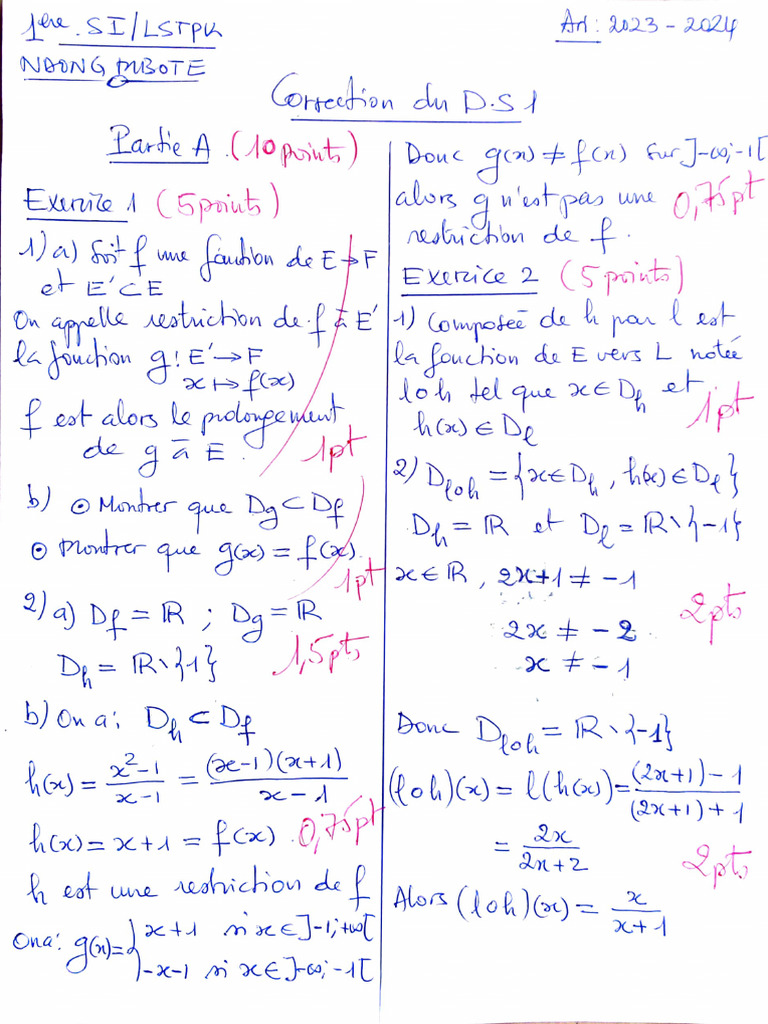 1ère SI/LSTPK
An : 2023 - 2024
NDONG MBOTE
Correction du D.S 1
Partie A (10 points)
Exercice 1 (5 points)
1) a) Soit f une fonction de E → F
et E' ⊂ E
On appelle restriction de f à E'
la fonction g : E' → F
x ↦ f(x)
f est alors le prolongement
de g à E. 1pt
b) ⊙ Montrer que Dg ⊂ Df
⊙ Montrer que g(x) = f(x).
1pt
2) a) Df = ℝ ; Dg = ℝ
Dh = ℝ \ {1} 1,5pts
b) On a : Dh ⊂ Df
h(x) = x²-1/x-1 = (x-1)(x+1)/x-1
h(x) = x+1 = f(x) 0,75pt
h est une restriction de f
On a : g(x) = { x+1 si x ∈ ]-1; +∞[
-x-1 si x ∈ ]-∞; -1[
Donc g(x) ≠ f(x) sur ]-∞; -1[
alors g n'est pas une 0,75pt
restriction de f.
Exercice 2 (5 points)
1) Composée de h par l est
la fonction de E vers L notée
loh tel que x ∈ Dh et
h(x) ∈ Dl 1pt
2) Dloh = {x ∈ Dh, h(x) ∈ Dl}
Dh = ℝ et Dl = ℝ \ {-1}
x ∈ ℝ, 2x+1 ≠ -1
2x ≠ -2 2pts
x ≠ -1
Donc Dloh = ℝ \ {-1}
(loh)(x) = l(h(x)) = (2x+1)-1/(2x+1)+1
= 2x/2x+2 2pts
Alors (loh)(x) = x/x+1